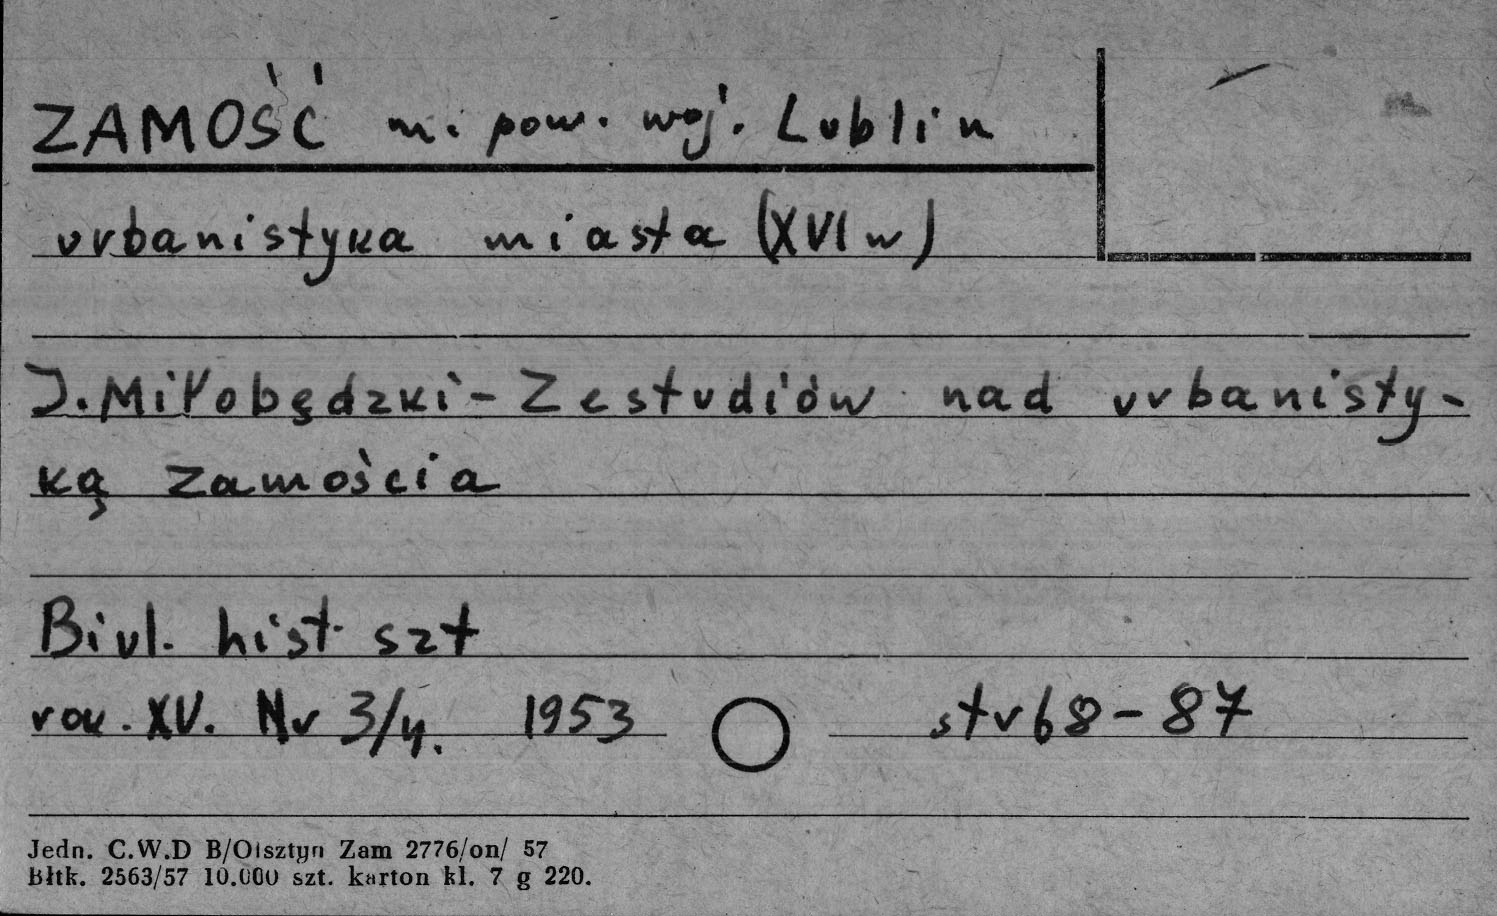 ZAMOŚĆ m. pow. woj. Lublin
urbanistyka miasta (XVI w)
J. Miłobędzki - Ze studiów nad urbanisty-
ką Zamościa
Biul. hist. szt
rok. XV. Nr 3/4. 1953 str 68-87
Jedn. C.W.D B/Olsztyn Zam 2776/on/ 57
Błtk. 2563/57 10.000 szt. karton kl. 7 g 220.